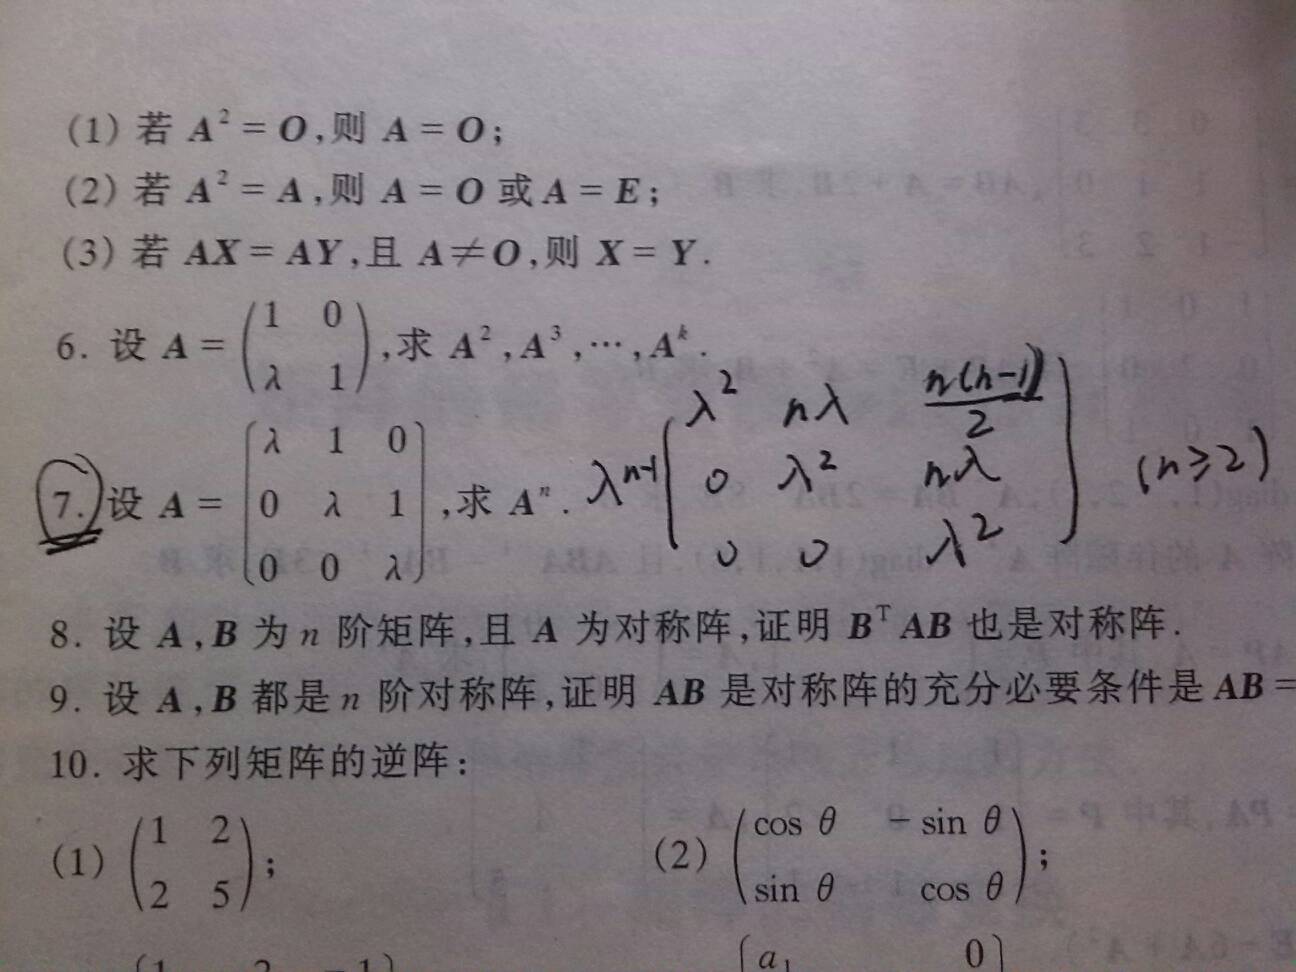 (1) 若 A² = O,则 A = O;
(2) 若 A² = A,则 A = O 或 A = E;
(3) 若 AX = AY,且 A ≠ O,则 X = Y.
6. 设 A = (1 0
λ 1) ,求 A²,A³,⋯,Aᵏ.
7. 设 A = (λ 1 0
0 λ 1
0 0 λ) ,求 Aⁿ.
λⁿ⁻¹ (λ² nλ n(n-1)/2
0 λ² nλ
0 0 λ²) (n≥2)
8. 设 A,B 为 n 阶矩阵,且 A 为对称阵,证明 BᵀAB 也是对称阵.
9. 设 A,B 都是 n 阶对称阵,证明 AB 是对称阵的充分必要条件是 AB =
10. 求下列矩阵的逆阵:
(1) (1 2
2 5) ;
(2) (cos θ − sin θ
sin θ cos θ) ;
(1 2 −1)
[a₁ 0]